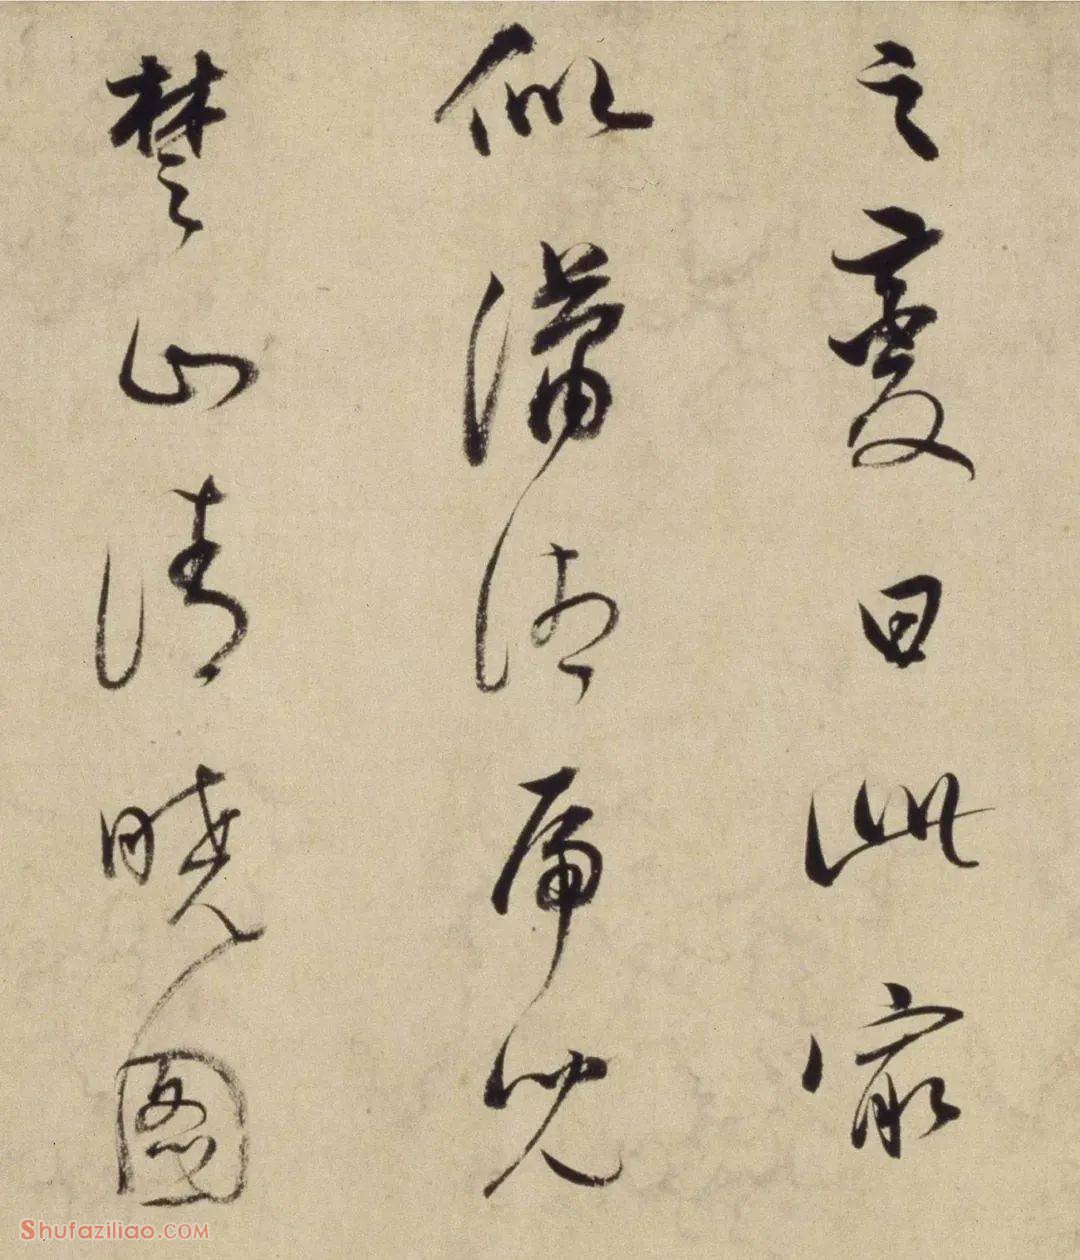 之曰此最
似瀟湘虎兒
楚山清曉圖
Shufaziliao.com